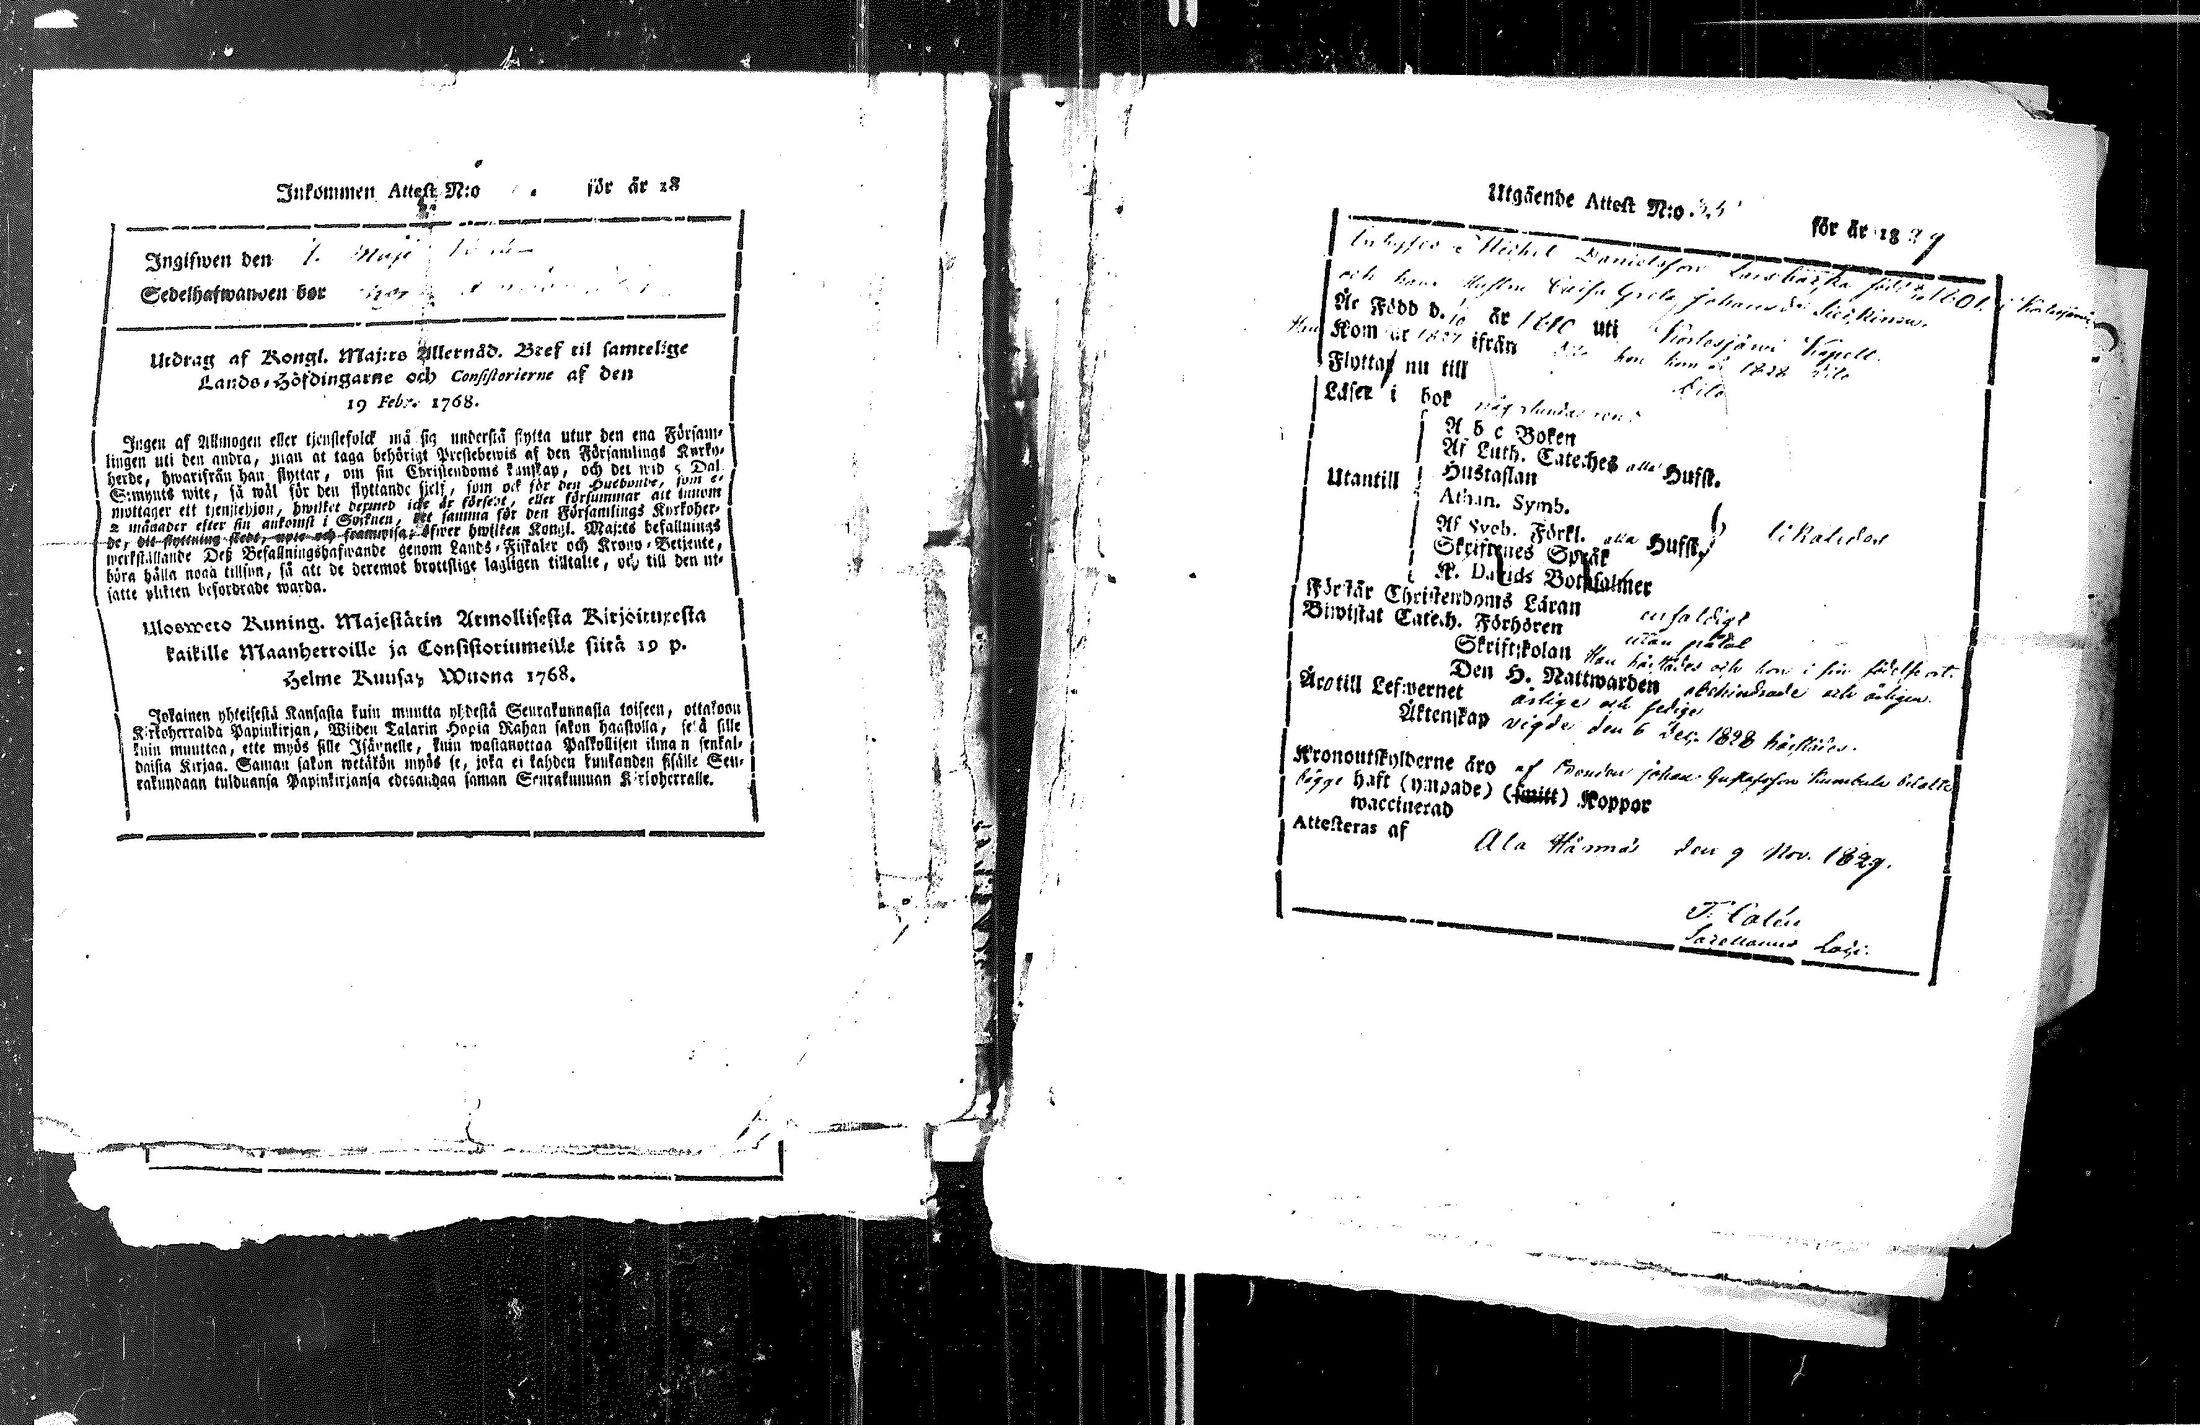 Inkommen Attest N:o för år 18
Ingifwen den 7. Maji
Sedelhafwanden bor
Utdrag af Kongl. Maj:ts Allernåd. Bref til samtelige
Lands-Höfdingarne och Consistorierne af den
19 Febr. 1768.
Ingen af Allmogen eller tjenstefolck må sig understå flytta utur den ena Försam-
lingen uti den andra, utan at taga behörigt Prestebewis af den Församlings Kyrko-
herde, hwarifrån han flyttar, om sin Christendoms kunskap, och det wid 5 Dal.
S:mynts wite, så wäl för den flyttande sielf, som ock för den Husbonde, som e-
mottager ett tjenstehjon, hwilket dermed icke är försedt, eller försummar att innom
2 månader efter sin ankomst i Soknen, det samma för den Församlings Kyrkoher-
de, dit flyttning skedt, upte och framwisa; öfwer hwilken Kongl. Maj:ts befallnings
werkställande Deß Befallningshafwande genom Lands-Fiskaler och Krono-Betjente,
böra hålla noga tillsyn, så att de deremot brottslige lagligen tilltalte, och till den ut-
satte plikten befordrade warda.
Ulosweto Kuning. Majestätin Armollisesta Kirjoituxesta
kaikille Maanherroille ja Consistoriumeille siitä 19 p.
Helme Kuusa, Wuona 1768.
Jokainen yhteisestä Kansasta kuin muutta yhdestä Seurakunnasta toiseen, ottakoon
Kirkoherralda Papinkirjan, Wiiden Talarin Hopia Rahan sakon haastolla, sekä sille
kuin muuttaa, ette myös sille Isännelle, kuin wastanottaa Palkollisen ilman senkal-
daista Kirjaa. Saman sakon wetäkön myös se, joka ei kahden kuukanden sisälle Seu-
rakundaan tulduansa Papinkirjansa edesandaa saman Seurakunnan Kirkoherralle.
Utgående Attest N:o 35 för år 1829
Michel Danielsson född 1801 i
och hans Hustru Caisa Greta Johansdr
Är Född d. 10 år 1810 uti Kortesjärvi Kapell.
Han Kom år 1827 ifrån dito hon kom 1828 dito
Flyttar nu till dito
Läser i bok
A b c Boken
Af Luth. Cateches alla Hufst.
Utantill Hustaflan
Athan. Symb.
Af Sveb. Förkl. alla Hufst. likaledes
Skriftenes Språk
K. Davids Botpsalmer
Förstår Christendoms Läran enfaldigt
Biwistat Catech. Förhören utan
Skriftskolan Han härstädes och hon i sin födelseort.
Den H. Nattwarden obehindrade och årligen.
Äro till Lefwernet ärlige och fredige
Äktenskap vigde den 6 Dec. 1828 härstädes.
Kronoutskylderne äro af Bonden Johan Gustafsson betalte
bägge Haft (ympade) (smitt) Koppor
waccinerad
Attesteras af
Ala Härmä den 9 Nov. 1829.